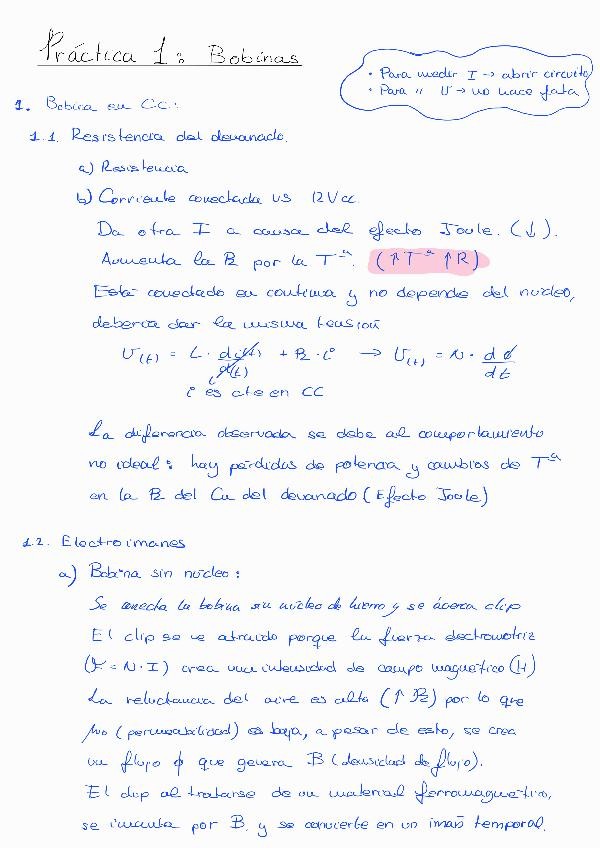 Práctica 1: Bobinas
• Para medir I → abrir circuito
• Para " U → no hace fata
1. Bobina en C.C.:
1.1. Resistencia del devanado.
a) Resistencia
b) Corriente conectada vs 12 V cc.
Da otra I a causa del efecto Joule. (↓).
Aumenta la R por la Tª. (↑Tª ↑R)
Está conectado en continua y no depende del núcleo,
debería dar la misma tensión
U(t) = L · di(t)/d(t) + R · i → U(t) = N · dϕ/dt
i es cte en CC
La diferencia observada se debe al comportamiento
no ideal: hay pérdidas de potencia y cambios de Tª
en la R del Cu del devanado (Efecto Joule)
1.2. Electroimanes
a) Bobina sin núcleo:
Se conecta la bobina sin núcleo de hierro y se acerca clip
El clip se ve atraido porque la fuerza electromotriz
(F = N · I) crea una intensidad de campo magnético (H)
La reluctancia del aire es alta (↑ R) por lo que
μo (permeabilidad) es baja, a pesar de esto, se crea
un flujo ϕ que genera B (densidad de flujo).
El clip al tratarse de un material ferromagnético,
se imanta por B. y se convierte en un imán temporal.